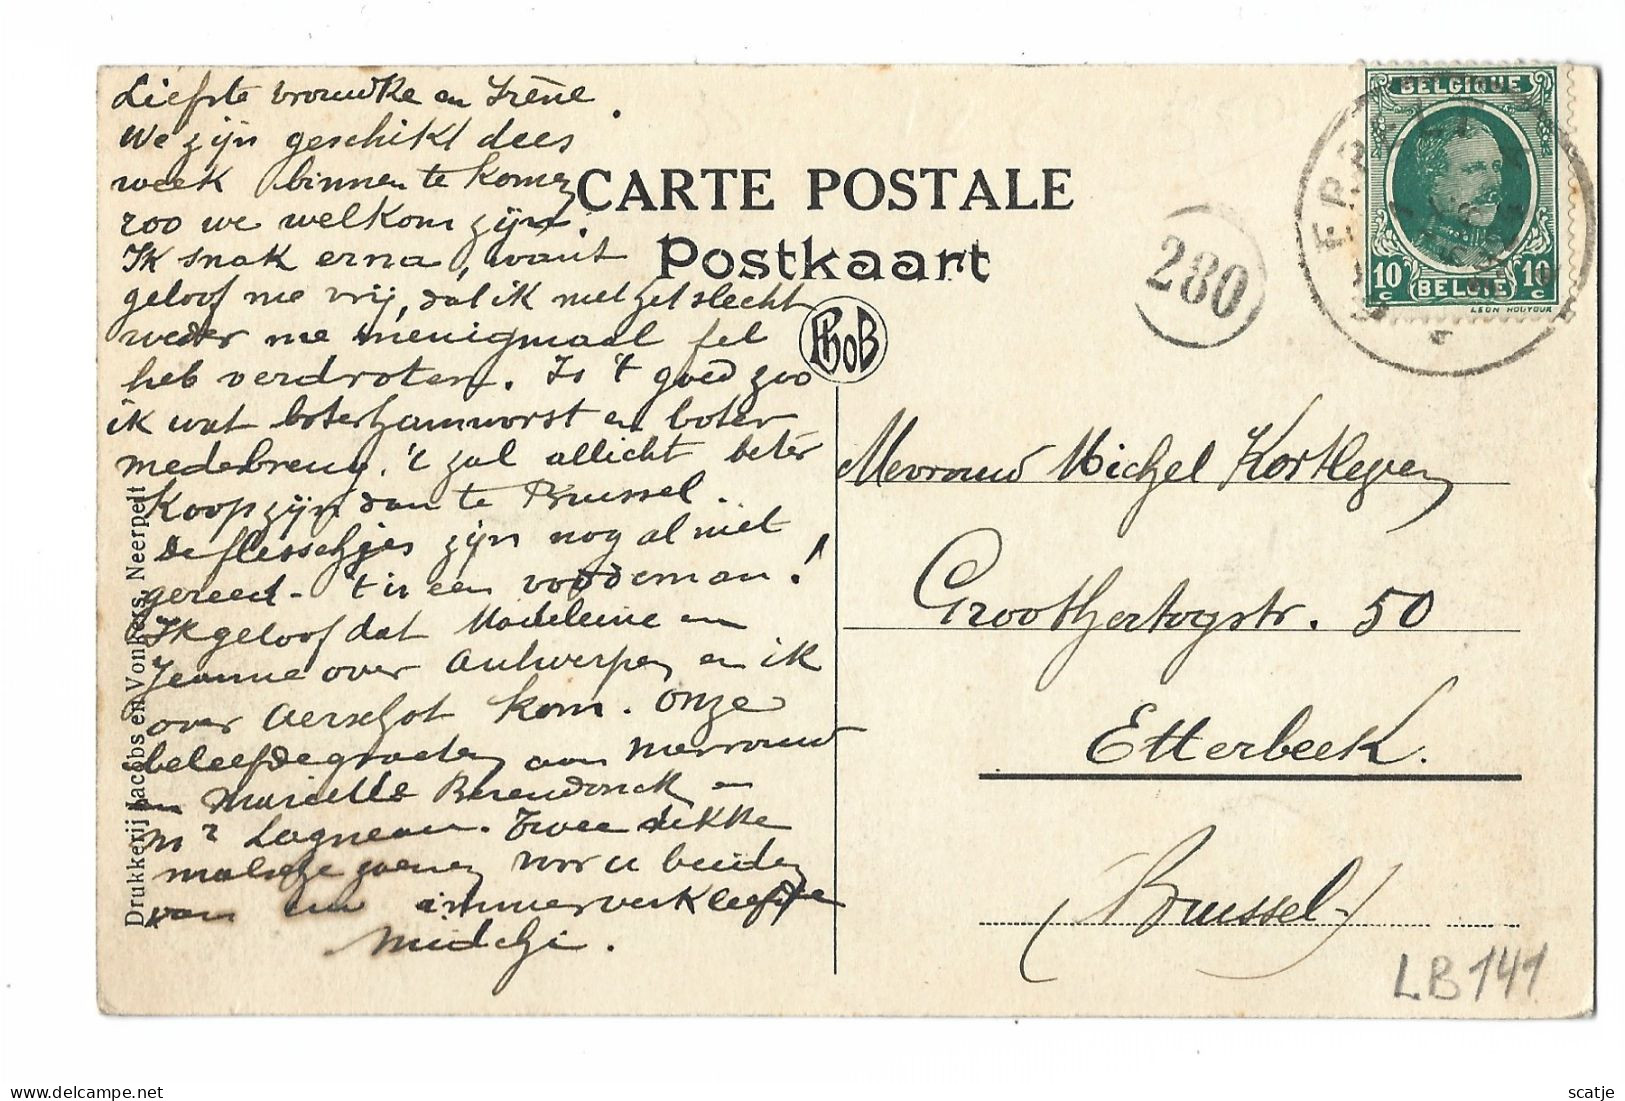 Liefste vrouwke en Irène.
We zijn geschikt dees
week binnen te komen
zoo we welkom zijn.
Ik snak erna, want
geloof me vrij, dat ik met het slecht
weder me menigmaal fel
heb verdroten. Is 't goed zoo
ik wat boterhamworst en boter
medebreng. 't zal allicht beter
koop zijn dan te Brussel.
De flesschjes zijn nog al niet
gereed - 't is een
Ik geloof dat Madeleine en
Jeanne over Antwerpen en ik
over Aerschot kom. Onze
beleefde groeten aan Mevrouw
en Marcelle Berendonck en
Mr Lagneau. Twee dikke
malsche zoenen voor u beiden
van uw immerverkleefde
Michi.
Drukkerij Jacobs en Vonkers, Neerpelt
CARTE POSTALE
Postkaart
PhoB
280
BELGIQUE
10 c
10 c
BELGIË
LEON HOUYOUX
Mevrouw Michel Kortleven
Groothertogstr. 50
Etterbeek.
(Brussel)
LB 141
scatje